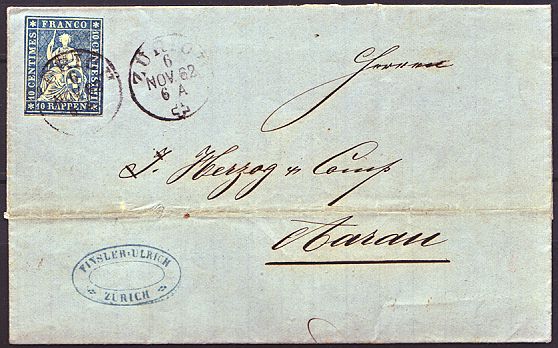 FRANCO
10 CENTIMES
10 CENTESIMI
10 RAPPEN
6
ZÜRICH
6
NOV 62
6 A
Herren
J. Herzog & Comp
Aarau
FINSLER-ULRICH
ZÜRICH